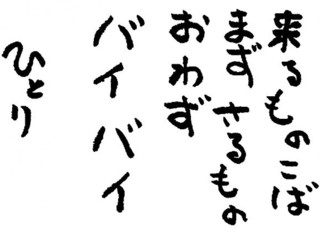 来るものこば
まず さるもの
おわず
バイバイ
ひとり